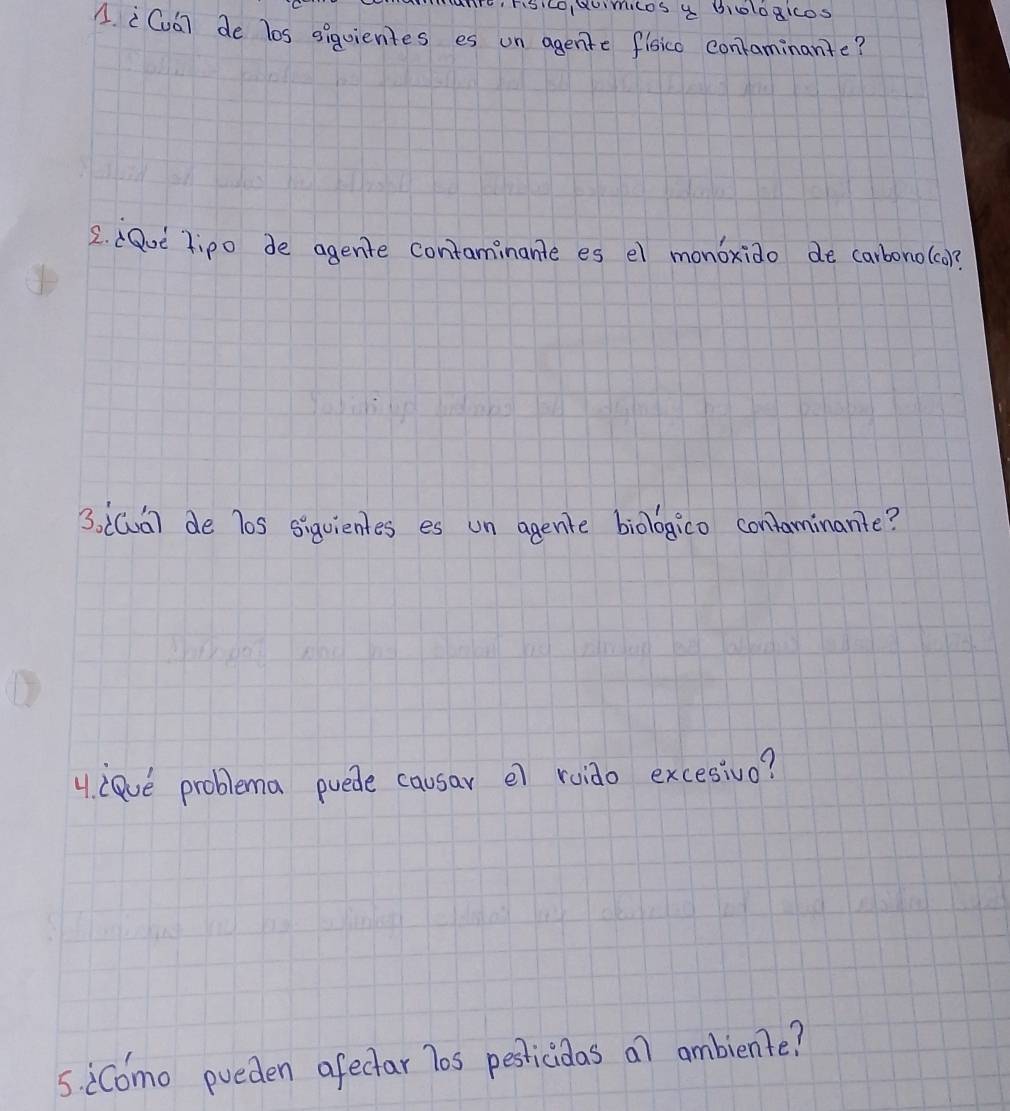 Físico, Químicos y Biológicos
1. ¿Cuál de los siguientes es un agente físico contaminante?
2. ¿Qué tipo de agente contaminante es el monóxido de carbono(co)?
3. ¿Cuál de los siguientes es un agente biológico contaminante?
4. ¿Qué problema puede causar el ruido excesivo?
5. ¿Cómo pueden afectar los pesticidas al ambiente?